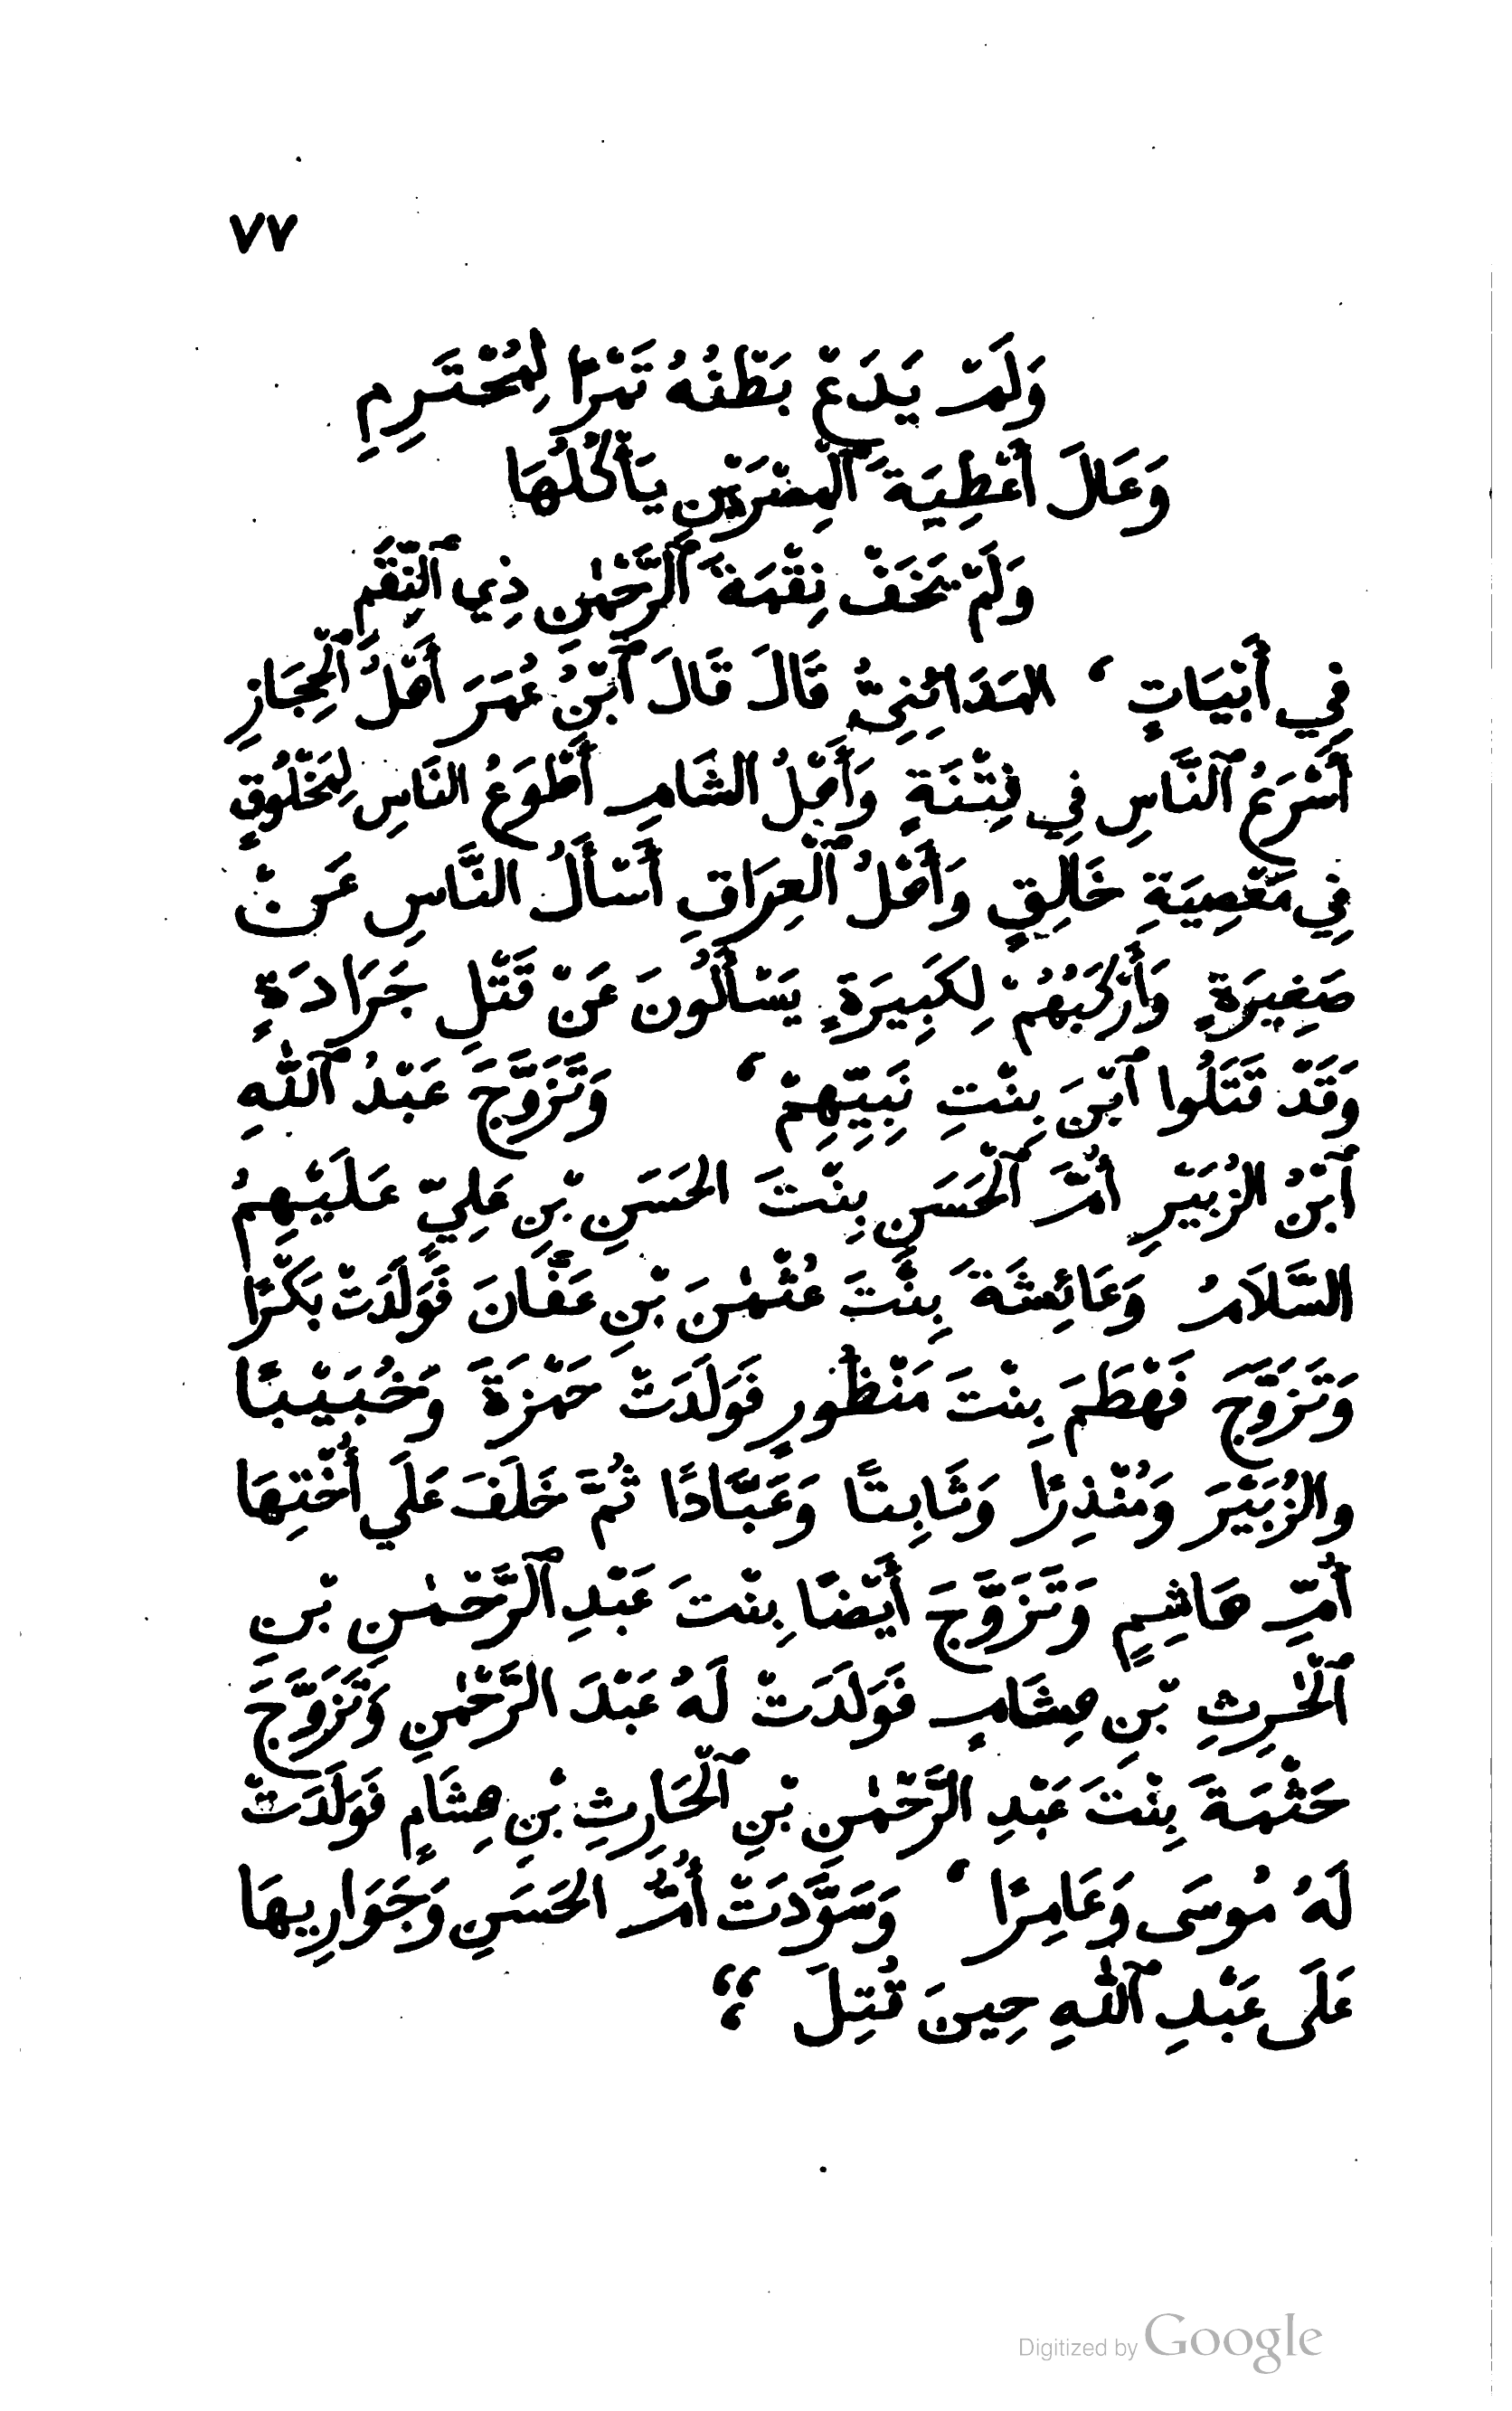 ٧٧
وَلَمْ يَدَعْ بَطْنُهُ تَمْرًا لِمُحْتَرِمِ
وَعَالَ أَعْطِيَةَ ٱلْمِصْرَيْنِ يَأْكُلُهَا
وَلَمْ يَخَفْ نِقْمَةَ ٱلرَّحْمٰنِ ذِي ٱلنِّقَمِ
فِي أَبْيَاتٍ ، المَدَائِنِيُّ قَالَ قَالَ ٱبْنُ عُمَرَ أَهْلُ ٱلْحِجَازِ
أَسْرَعُ ٱلنَّاسِ فِي فِتْنَةٍ وَأَهْلُ الشَامِ أَطْوَعُ النَاسِ لِمَخْلُوقٍ
فِي مَعْصِيَةِ خَالِقٍ وَأَهْلُ ٱلْعِرَاقِ أَسْأَلُ النَّاسِ عَنْ
صَغِيرَةٍ وَأَرْكَبُهُمْ لِكَبِيرَةٍ يَسْأَلُونَ عَنْ قَتْلِ جَرَادَةٍ
وَقَدْ قَتَلُوا ٱبْنَ بِنْتِ نَبِيِّهِمْ ، وَتَزَوَّجَ عَبْدُ ٱللّٰهِ
ٱبْنُ الزُبَيْرِ أُمَّ ٱلْحَسَنِ بِنْتَ الحَسَنِ بْنِ عَلِيٍّ عَلَيْهِمُ
السَّلَامُ وَعَائِشَةَ بِنْتَ عُثْمٰنَ بْنِ عَفَّانَ فَوَلَدَتْ بَكْرًا
وَتَزَوَّجَ فَهْطَمَ بِنْتَ مَنْظُورٍ فَوَلَدَتْ حَمْزَةَ وَخُبَيْبًا
والزُبَيْرَ وَمُنْذِرًا وَثَابِتًا وَعَبَّادًا ثُمَّ خَلَفَ عَلَي أُخْتِهَا
أُمِّ هَاشِمٍ وَتَزَوَّجَ أَيْضًا بِنْتَ عَبْدِ ٱلرَّحْمٰنِ بْنِ
ٱلْحٰرِثِ بْنِ هِشَامٍ فَوَلَدَتْ لَهُ عَبْدَ الرَّحْمٰنِ وَتَزَوَّجَ
حَنْتَمَةَ بِنْتَ عَبْدِ الرَّحْمٰنِ بْنِ ٱلْحَارِثِ بْنِ هِشَامٍ فَوَلَدَتْ
لَهُ مُوسَى وَعَامِرًا ، وَسَوَّدَتْ أُمُّ الحَسَنِ وَجَوَارِيهَا
عَلَى عَبْدِ ٱللّٰهِ حِينَ قُتِلَ ؞
Digitized by Google